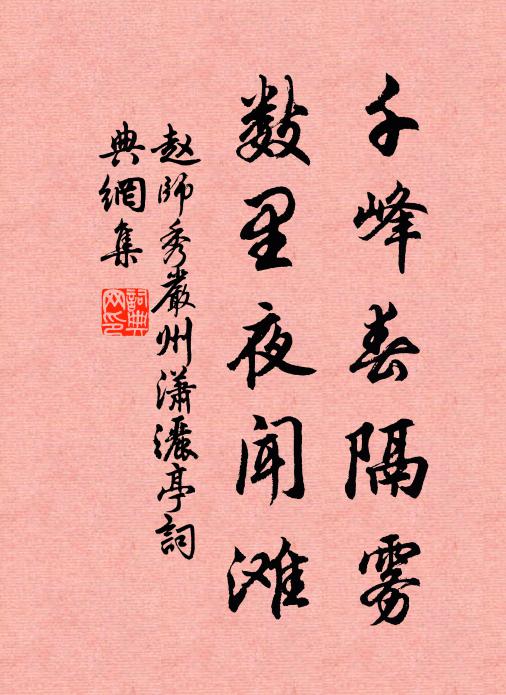 千峰春隔雾
数里夜闻滩
赵师秀嚴州潇灑亭詞
典網集
詞典
网印